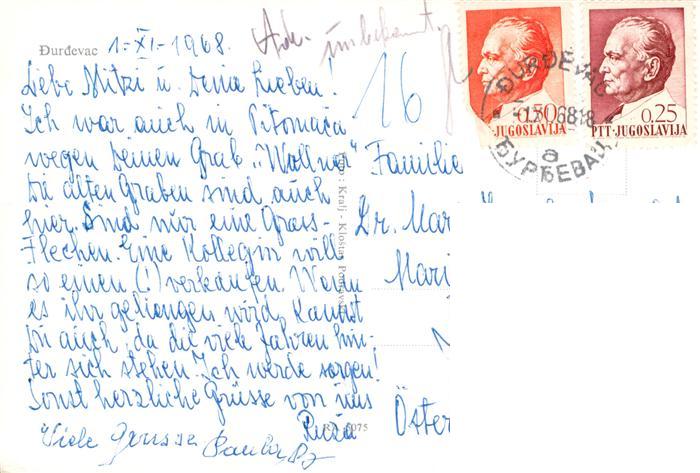 Đurđevac 1-XI-1968.
Adr. unbekannt
Liebe Mitzi u. Deine Lieben!
Ich war auch in Pitomača
wegen Deinen Grab „Wollner"
Die alten Graben sind auch
hier. Sind nur eine Grass-
Flechen. Eine Kollegin will
so einen (!) verkaufen. Wenn
es ihr gelingen wird, kannst
Du auch, da die viele Jahren hin-
ter sich stehen. Ich werde sorgen!
Sonst herzliche Grüsse von uns
Ruža
Viele Grüsse
Foto: Kralj - Kloštar Podravski
R. 5075
16
Familie
Dr. Mar
Mari
Öster
0.50
JUGOSLAVIJA
0.25
PTT·JUGOSLAVIJA
ĐURĐEVAC
68 18
a
ЂУРЂЕВАЦ